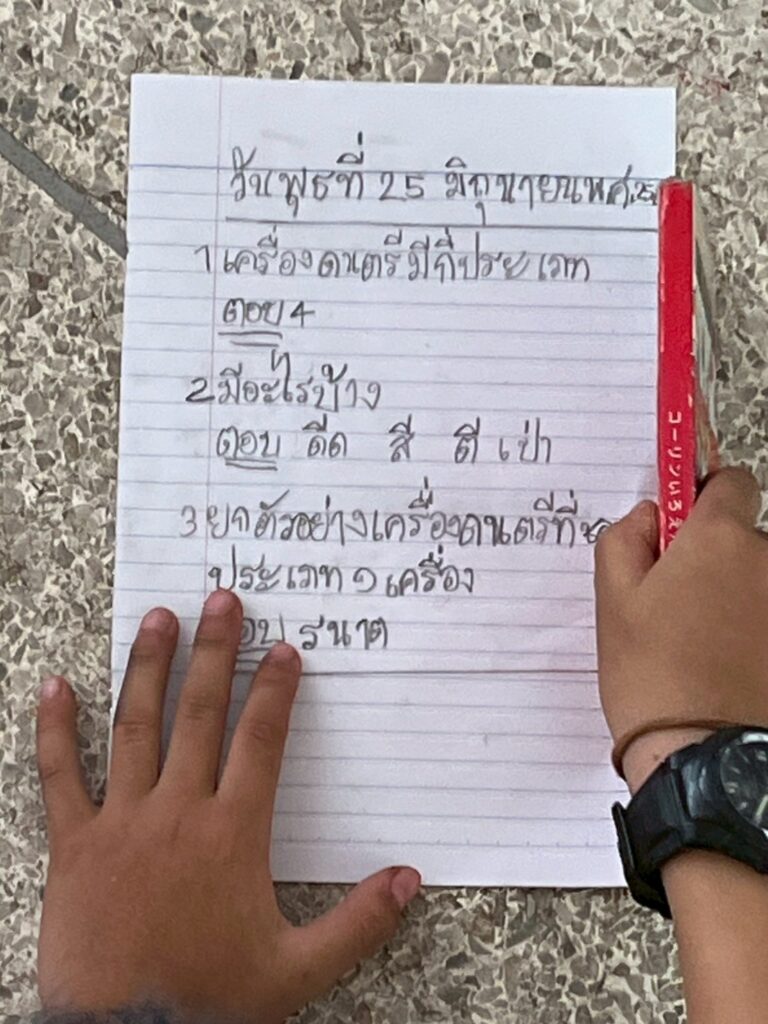 วันพุธที่ 25 มิถุนายนพศ.25
1 เครื่องดนตรีมีกี่ประเภท
ตอบ 4
2 มีอะไรบ้าง
ตอบ ดีด สี ตี เป่า
3 ยกตัวอย่างเครื่องดนตรีที่
ประเภท ๑ เครื่อง
อบ รนาต